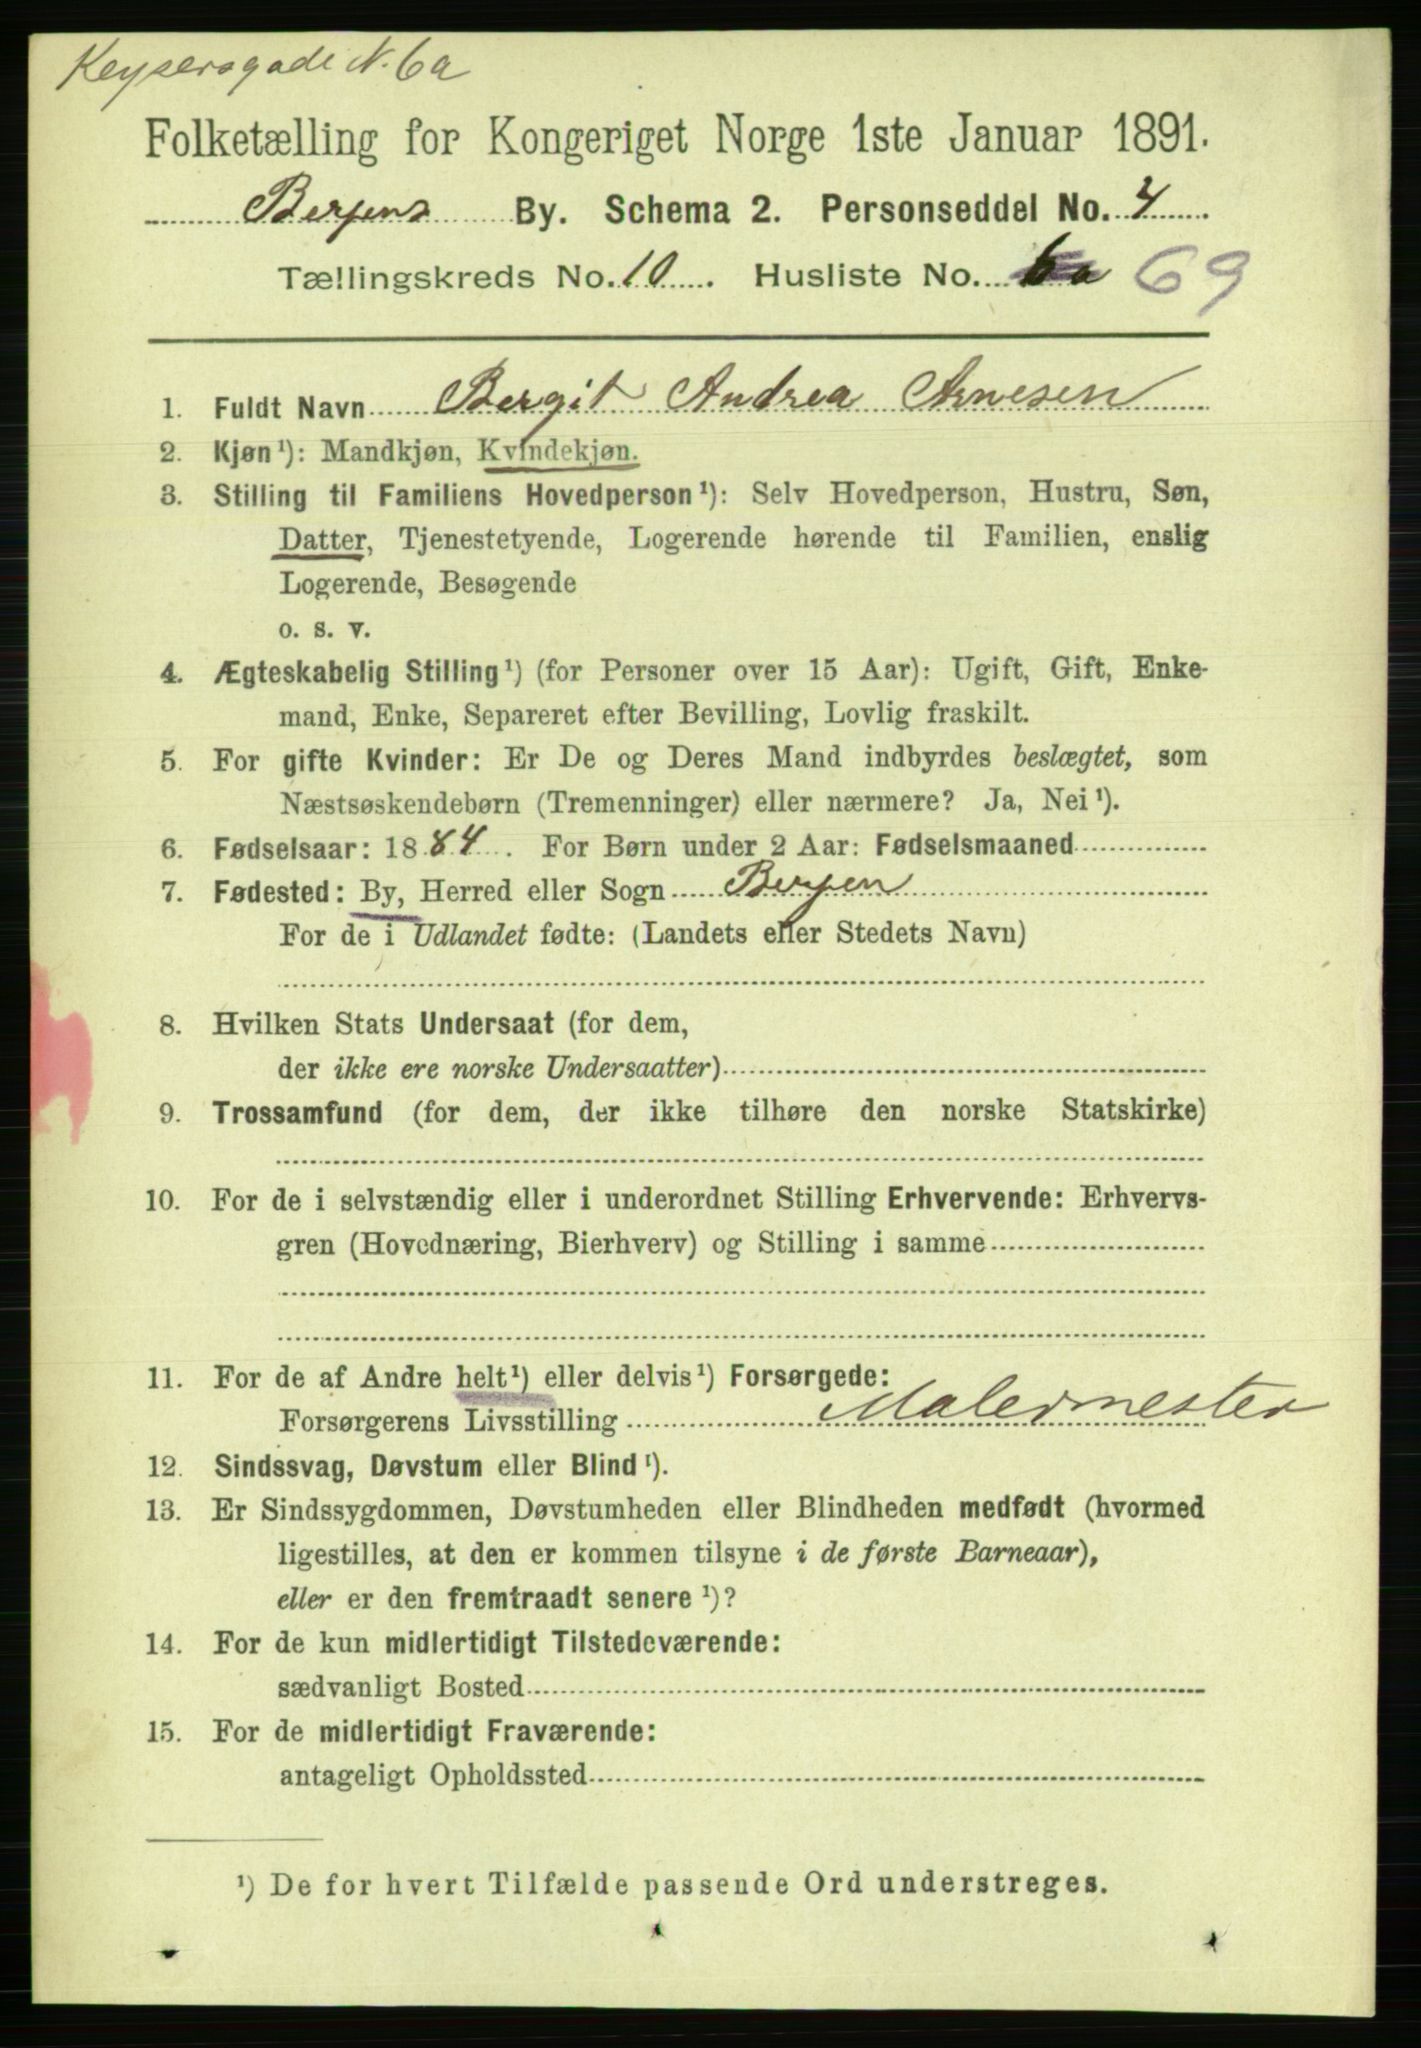 Keysersgade N. 6a
Folketælling for Kongeriget Norge 1ste Januar 1891.
Bergens By. Schema 2. Personseddel No. 4
Tællingskreds No. 10. Husliste No. 6a 69
1. Fuldt Navn Bergit Andrea Arnesen
2. Kjøn ¹): Mandkjøn, Kvindekjøn.
3. Stilling til Familiens Hovedperson ¹): Selv Hovedperson, Hustru, Søn,
Datter, Tjenestetyende, Logerende hørende til Familien, enslig
Logerende, Besøgende
o. s. v.
4. Ægteskabelig Stilling ¹) (for Personer over 15 Aar): Ugift, Gift, Enke-
mand, Enke, Separeret efter Bevilling, Lovlig fraskilt.
5. For gifte Kvinder: Er De og Deres Mand indbyrdes beslægtet, som
Næstsøskendebørn (Tremenninger) eller nærmere? Ja, Nei ¹).
6. Fødselsaar: 1884. For Børn under 2 Aar: Fødselsmaaned
7. Fødested: By, Herred eller Sogn Bergen
For de i Udlandet fødte: (Landets eller Stedets Navn)
8. Hvilken Stats Undersaat (for dem,
der ikke ere norske Undersaatter)
9. Trossamfund (for dem, der ikke tilhøre den norske Statskirke)
10. For de i selvstændig eller i underordnet Stilling Erhvervende: Erhvervs-
gren (Hovednæring, Bierhverv) og Stilling i samme
11. For de af Andre helt ¹) eller delvis ¹) Forsørgede:
Forsørgerens Livsstilling Malermester
12. Sindssvag, Døvstum eller Blind ¹).
13. Er Sindssygdommen, Døvstumheden eller Blindheden medfødt (hvormed
ligestilles, at den er kommen tilsyne i de første Barneaar),
eller er den fremtraadt senere ¹)?
14. For de kun midlertidigt Tilstedeværende:
sædvanligt Bosted
15. For de midlertidigt Fraværende:
antageligt Opholdssted
¹) De for hvert Tilfælde passende Ord understreges.